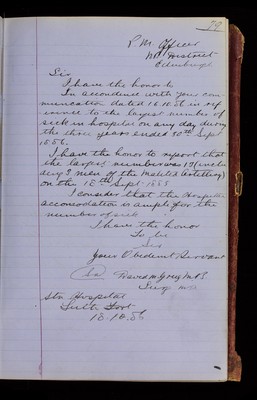 79
P. M. Officer
No 1 District
Edinburgh
Sir
I have the honor to
In accordance with your com
munication dated 16.10.86 in ref
erence to the largest number of
sick in hospital on any day during
the three years ended 30th Sept
1886.
I have the honor to report that
the largest number was 19 (inclu
ding 3 men of the Militia Artillery)
on the 18th Sept
I consider that the Hospital
accomodation is ample for the
number of sick
I have the honor
To be
Sir
Your Obedient Servant
David M Greig
Surg
Stn Hospital
Leith Fort
18.10.86